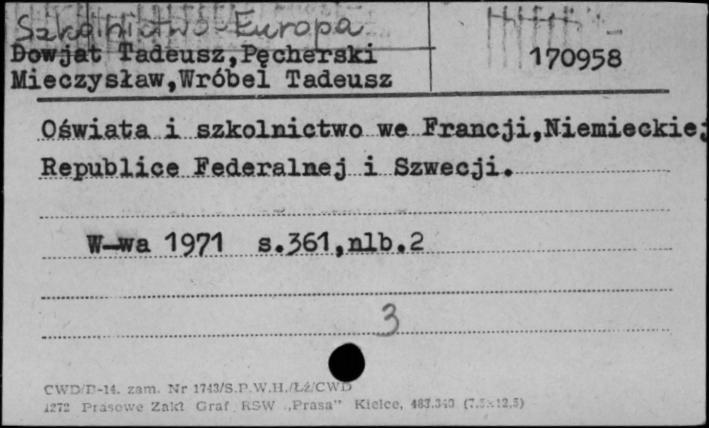 Szkolnictwo-Europa
Dowjat Tadeusz,Pęcherski
Mieczysław,Wróbel Tadeusz
170958
Oświata i szkolnictwo we Francji,Niemieckiej
Republice Federalnej i Szwecji.
W-wa 1971 s.361,nlb.2
3
CWD/D-14. zam. Nr 1743/S.P.W.H./Łź/CWD
1272 Prasowe Zakł Graf RSW „Prasa" Kielce, 483.340 (7.5x12.5)